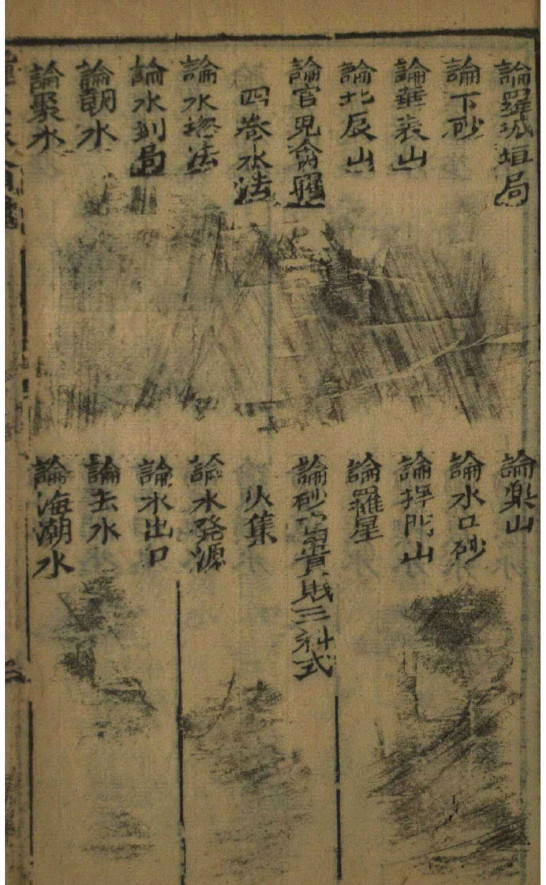 論羅城垣局
論樂山
論下砂
論水口砂
論華表山
論捍門山
論北辰山
論羅星
論官鬼禽曜
論砂富貴賤三科式
四卷水法
火集
論水捴法
論水發源
論水到局
論水出口
論朝水
論去水
論聚水
論海潮水